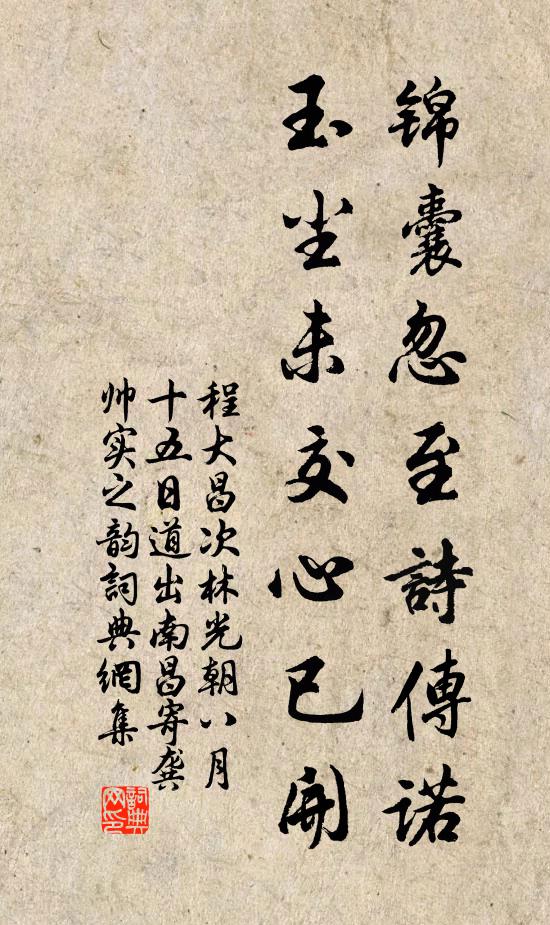 锦囊忽至詩傳诺
玉尘未交心已開
程大昌次林光朝八月
十五日道出南昌寄龚
帅实之韵詞典網集
詞典网印